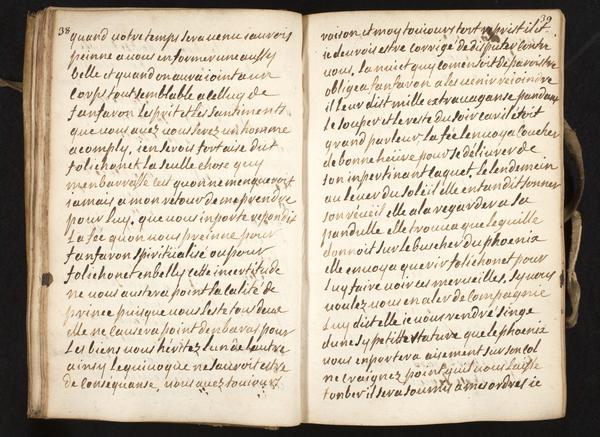 38
quand votre temps sera venu jaurois
peinne a vous en former une aussy
belle et quand on aura joint a un
corps tout semblable a celluy de
fanfaron lesprit et les sentiments
que vous avez vous serez un homme
acomply, jen serois fort aise dit
folichonet la seulle chose quy
menbarrasse cest quon ne
jamais a mon retour de me prendre
pour luy. que vous inporte repondit
la fée quon vous preinne pour
fanfaron spiritualisé ou pour
folichonet enbelly cette incertitude
ne vous austera point la calité de
prince puisque vous leste tous deux
elle ne causera point denbaras pour
les biens vous héritez lun de lautre
ainsy lequivoque ne sauroit estre
de conséquanse, vous avez toujours
39
raison et moy toujours tort reprist il et
je devrois estre corrigé de disputer contre
vous, la nuict quy comensoit de paroistre
obligea fanfaron a les venir rejoindre
il leur dist mille extravaganse pandant
le souper et le reste du soir car il étoit
grand parleur, la fée lenvoya coucher
de bonne heure pour se délivrer de
son inpertinant caquet, le lendemein
au lever du soleil elle entandit sonner
son réveil elle ala regarder a sa
pandulle elle trouva que leguille
donnoit sur le buscher du phoenix
elle envoya querir folichonet pour
luy faire voir ces merveilles, sy vous
voulez vous en aler de compagnie
luy dist elle je vous rendré singe
dune sy petite stature que le phoenix
vous enportera aisement sur son col
ne craignez point quil vous laisse
tonber il sera soumis a mes ordres je